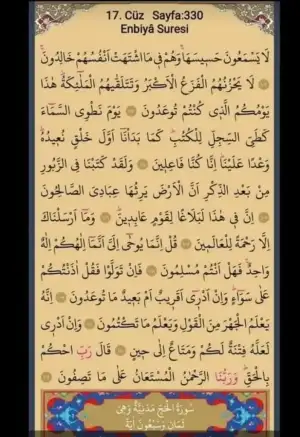 17. Cüz Sayfa:330
Enbiyâ Suresi
لَا يَسْمَعُونَ حَسِيسَهَاۚ وَهُمْ فٖى مَا اشْتَهَتْ اَنْفُسُهُمْ خَالِدُونَۚ
لَا يَحْزُنُهُمُ الْفَزَعُ الْاَكْبَرُ وَتَتَلَقّٰيهُمُ الْمَلٰٓئِكَةُؕ هٰذَا
يَوْمُكُمُ الَّذٖى كُنْتُمْ تُوعَدُونَ يَوْمَ نَطْوِى السَّمَٓاءَ
كَطَىِّ السِّجِلِّ لِلْكُتُبِؕ كَمَا بَدَاْنَٓا اَوَّلَ خَلْقٍ نُعٖيدُهُؕ
وَعْدًا عَلَيْنَاؕ اِنَّا كُنَّا فَاعِلٖينَ وَلَقَدْ كَتَبْنَا فِى الزَّبُورِ
مِنْ بَعْدِ الذِّكْرِ اَنَّ الْاَرْضَ يَرِثُهَا عِبَادِىَ الصَّالِحُونَ
اِنَّ فٖى هٰذَا لَبَلَاغًا لِقَوْمٍ عَابِدٖينَؕ وَمَٓا اَرْسَلْنَاكَ
اِلَّا رَحْمَةً لِلْعَالَمٖينَ قُلْ اِنَّمَا يُوحٰٓى اِلَىَّ اَنَّمَٓا اِلٰهُكُمْ اِلٰهٌ
وَاحِدٌۚ فَهَلْ اَنْتُمْ مُسْلِمُونَ فَاِنْ تَوَلَّوْا فَقُلْ اٰذَنْتُكُمْ
عَلٰى سَوَٓاءٍؕ وَاِنْ اَدْرٖٓى اَقَرٖيبٌ اَمْ بَعٖيدٌ مَا تُوعَدُونَ اِنَّهُ
يَعْلَمُ الْجَهْرَ مِنَ الْقَوْلِ وَيَعْلَمُ مَا تَكْتُمُونَ وَاِنْ اَدْرٖى
لَعَلَّهُ فِتْنَةٌ لَكُمْ وَمَتَاعٌ اِلٰى حٖينٍ قَالَ رَبِّ احْكُمْ
بِالْحَقِّؕ وَرَبُّنَا الرَّحْمٰنُ الْمُسْتَعَانُ عَلٰى مَا تَصِفُونَ
سُورَةُ الْحَجِّ مَدَنِيَّةٌ وَهِىَ
ثَمَانٍ وَسَبْعُونَ اٰيَةً